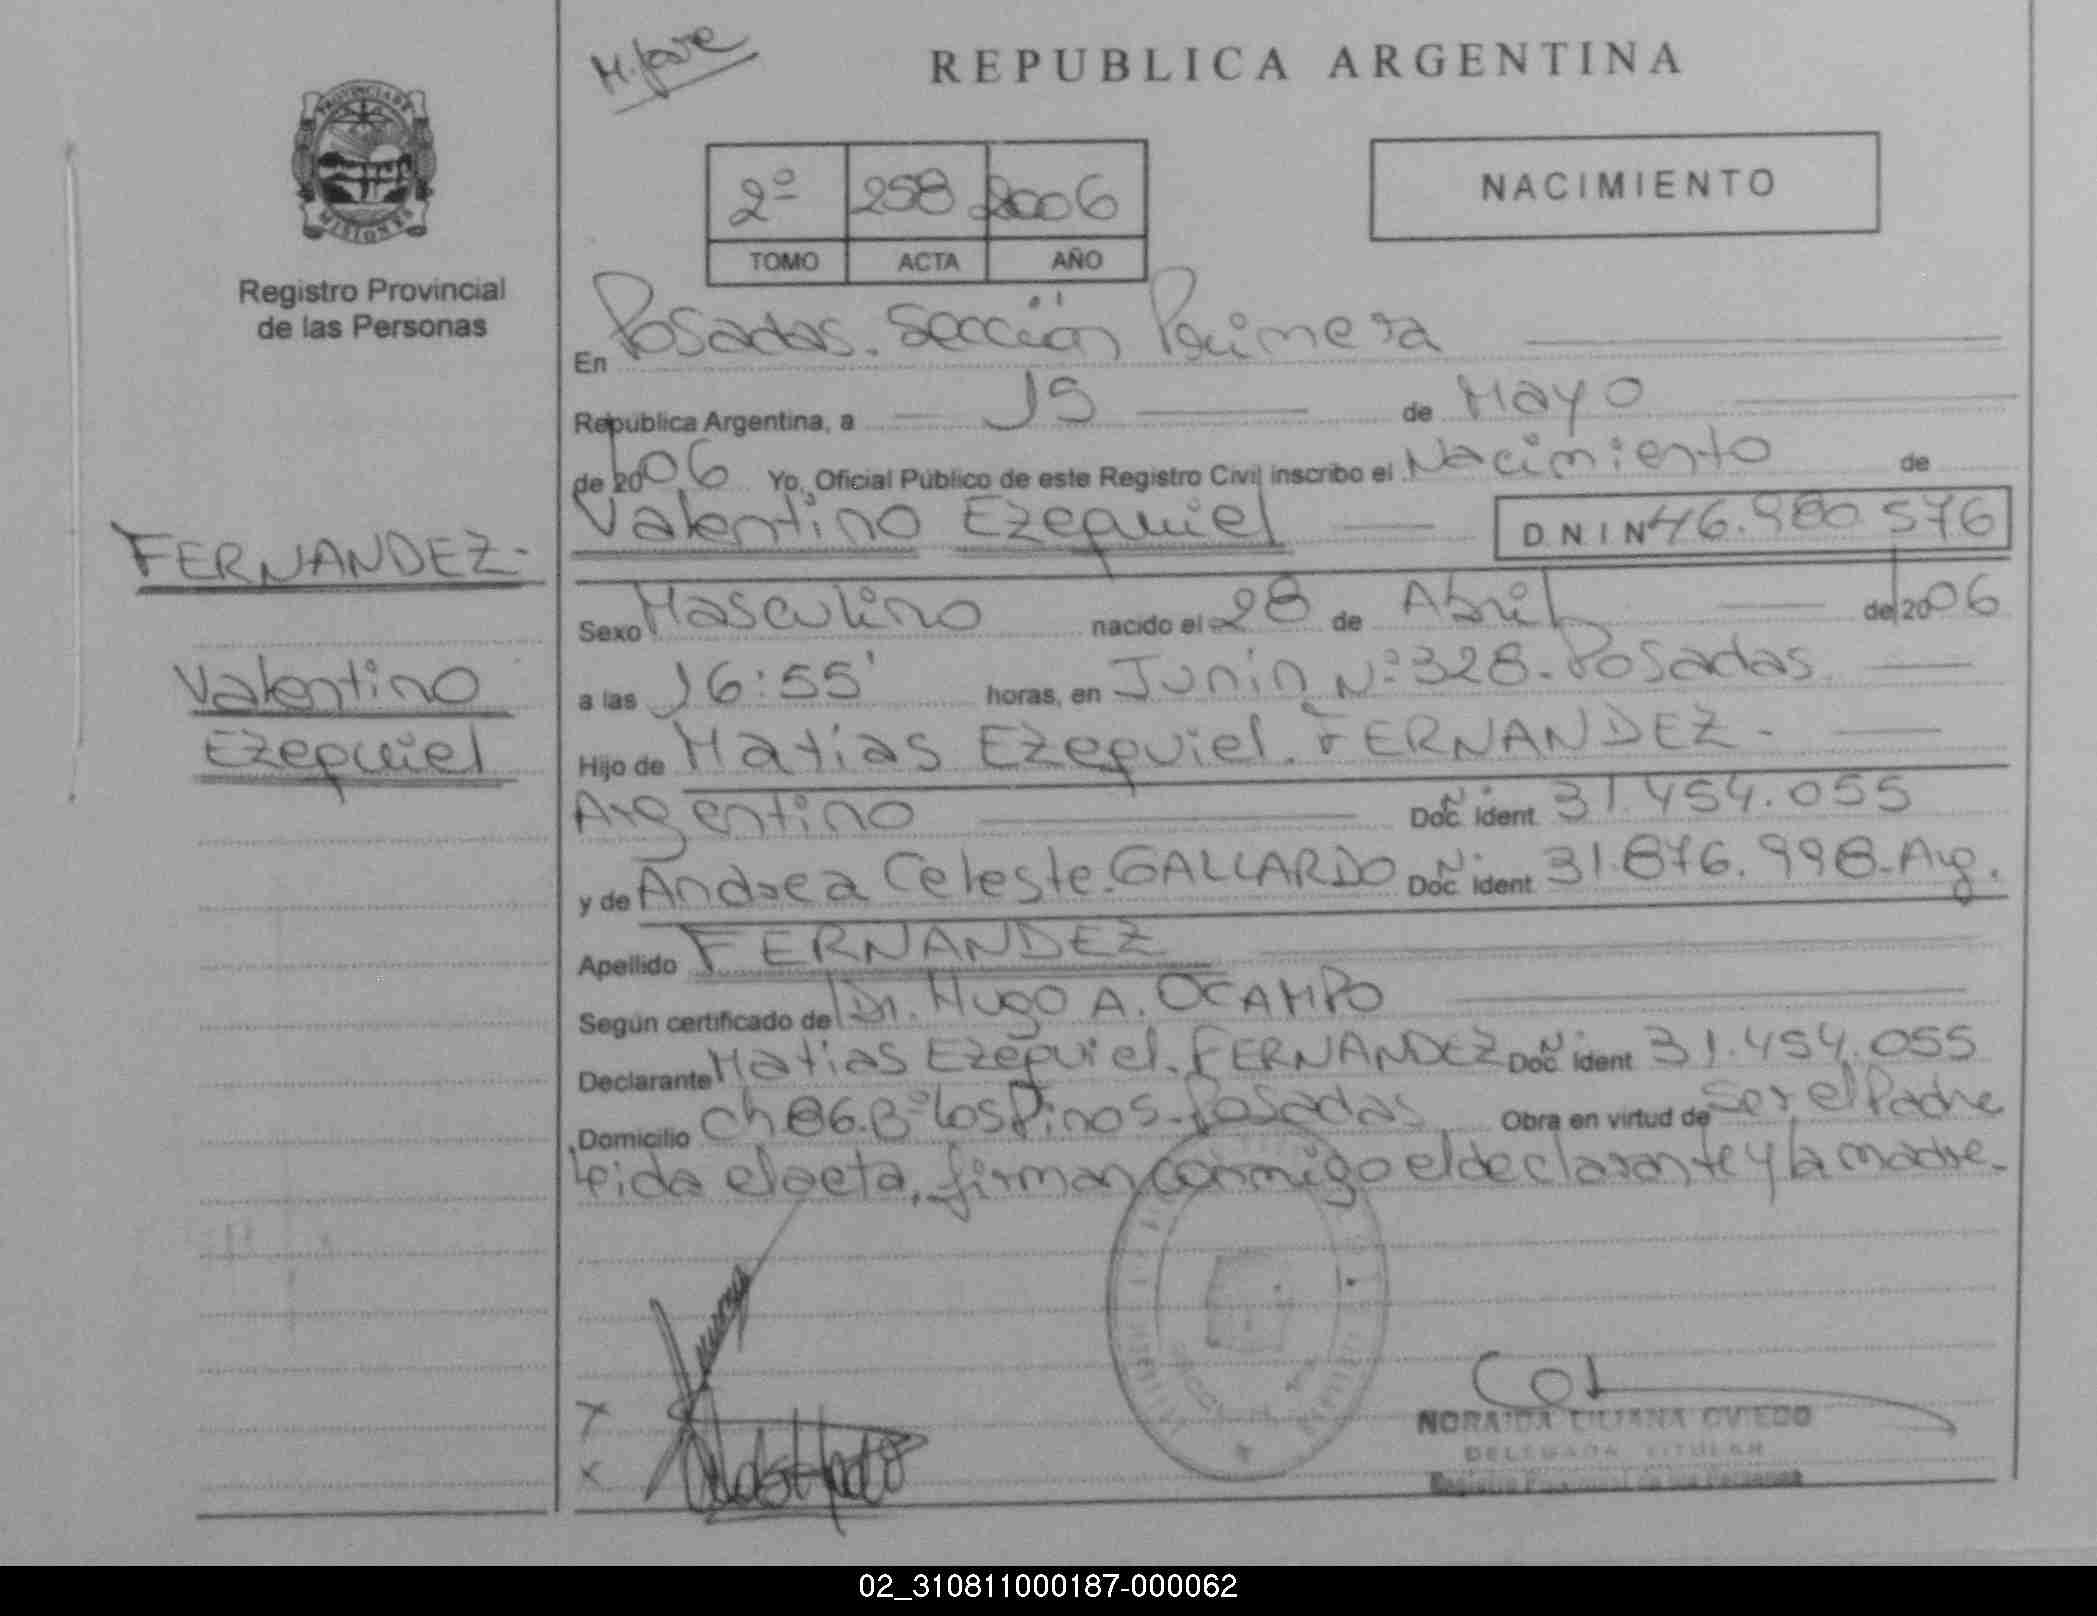 M. Jose
REPUBLICA ARGENTINA
PROVINCIA DE
MISIONES
Registro Provincial
de las Personas
2º 258 2006
TOMO ACTA AÑO
NACIMIENTO
En Posadas. Sección Primera
República Argentina, a 15 de Mayo
de 2006 Yo, Oficial Público de este Registro Civil inscribo el Nacimiento de
Valentino Ezequiel D N I N 46.980.576
FERNANDEZ.
Valentino
Ezequiel
Sexo Masculino nacido el 28 de Abril de 2006
a las 16:55' horas, en Junin Nº 328. Posadas
Hijo de Matias Ezequiel. FERNANDEZ.
Argentino Doc. Nº Ident. 31.454.055
y de Andrea Celeste. GALLARDO Doc. Nº Ident. 31.876.998-Arg.
Apellido FERNANDEZ
Según certificado de Dr. Hugo A. OCAMPO
Declarante Matias Ezequiel. FERNANDEZ Doc. Nº Ident 31.454.055
Domicilio Ch 86. Bº los Pinos. Posadas Obra en virtud de ser el Padre
leida el acta, firman conmigo el declarante y la madre.
NORAIDA LILIANA OVIEDO
DELEGADA TITULAR
Registro Provincial de las Personas
02_310811000187-000062